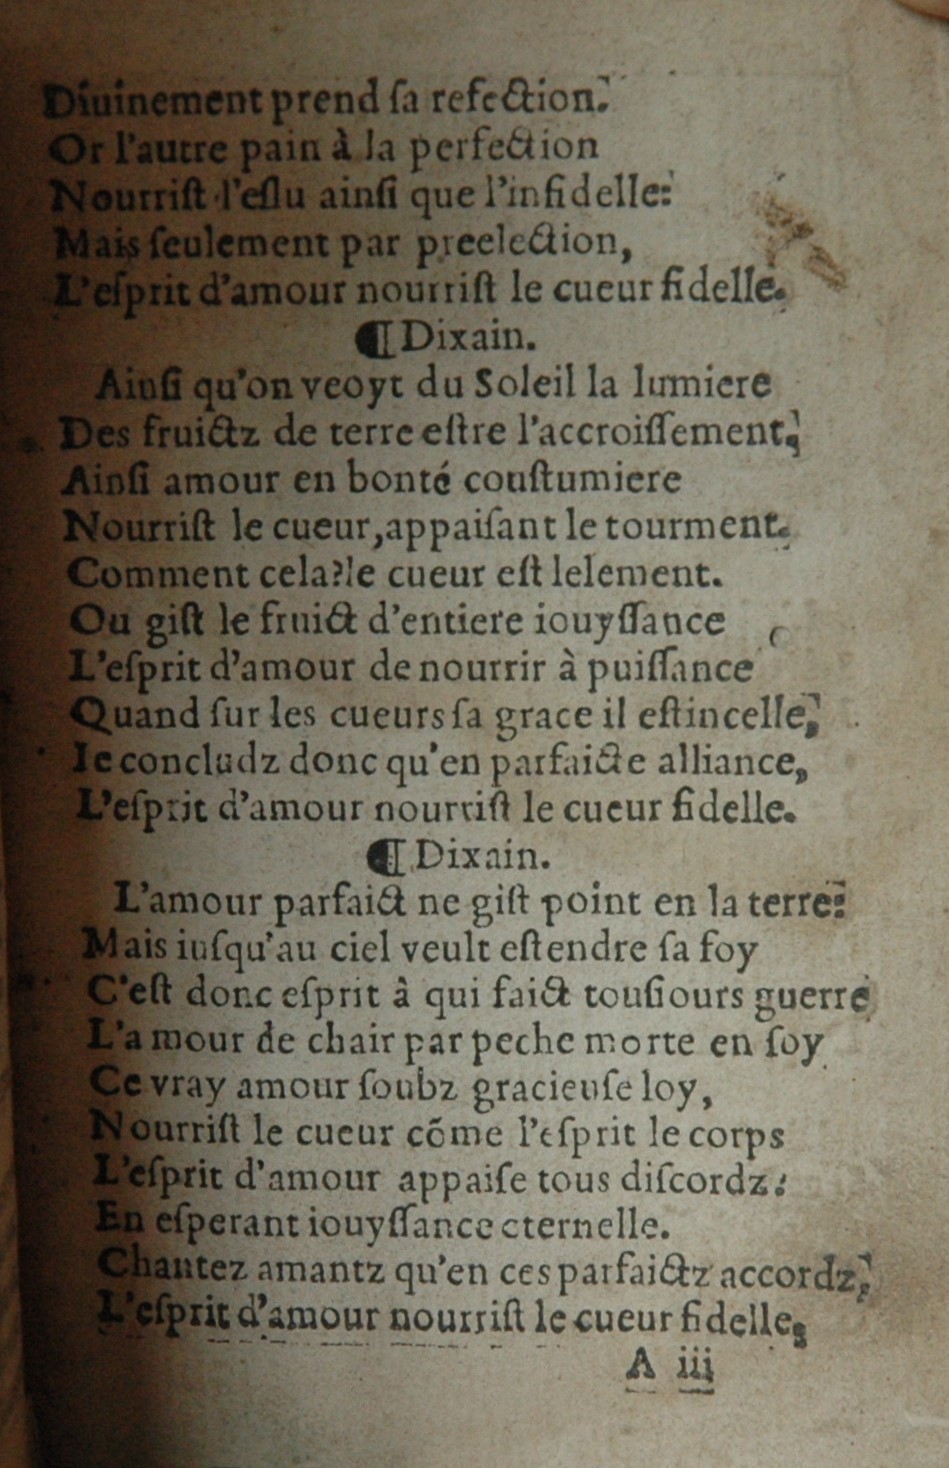 Diuinement prend ſa refection.
Or l'autre pain à la perfection
Nourriſt l'eſlu ainſi que l'infidelle:
Mais ſeulement par preelection,
L'eſprit d'amour nourriſt le cueur fidelle.
¶ Dixain.
Ainſi qu'on veoyt du Soleil la lumiere
Des fruictz de terre eſtre l'accroiſſement,
Ainſi amour en bonté couſtumiere
Nourriſt le cueur, appaiſant le tourment.
Comment cela? le cueur eſt lelement.
Ou giſt le fruict d'entiere iouyſſance
L'eſprit d'amour de nourrir à puiſſance
Quand ſur les cueurs ſa grace il eſtincelle,
Ie concludz donc qu'en parfaicte alliance,
L'eſprit d'amour nourriſt le cueur fidelle.
¶ Dixain.
L'amour parfaict ne giſt point en la terre:
Mais iuſqu'au ciel veult eſtendre ſa foy
C'eſt donc eſprit à qui faict touſiours guerre
L'amour de chair par peche morte en ſoy
Ce vray amour ſoubz gracieuſe loy,
Nourriſt le cueur cõme l'eſprit le corps
L'eſprit d'amour appaiſe tous diſcordz:
En eſperant iouyſſance eternelle.
Chantez amantz qu'en ces parfaictz accordz,
L'eſprit d'amour nourriſt le cueur fidelle,
A iii